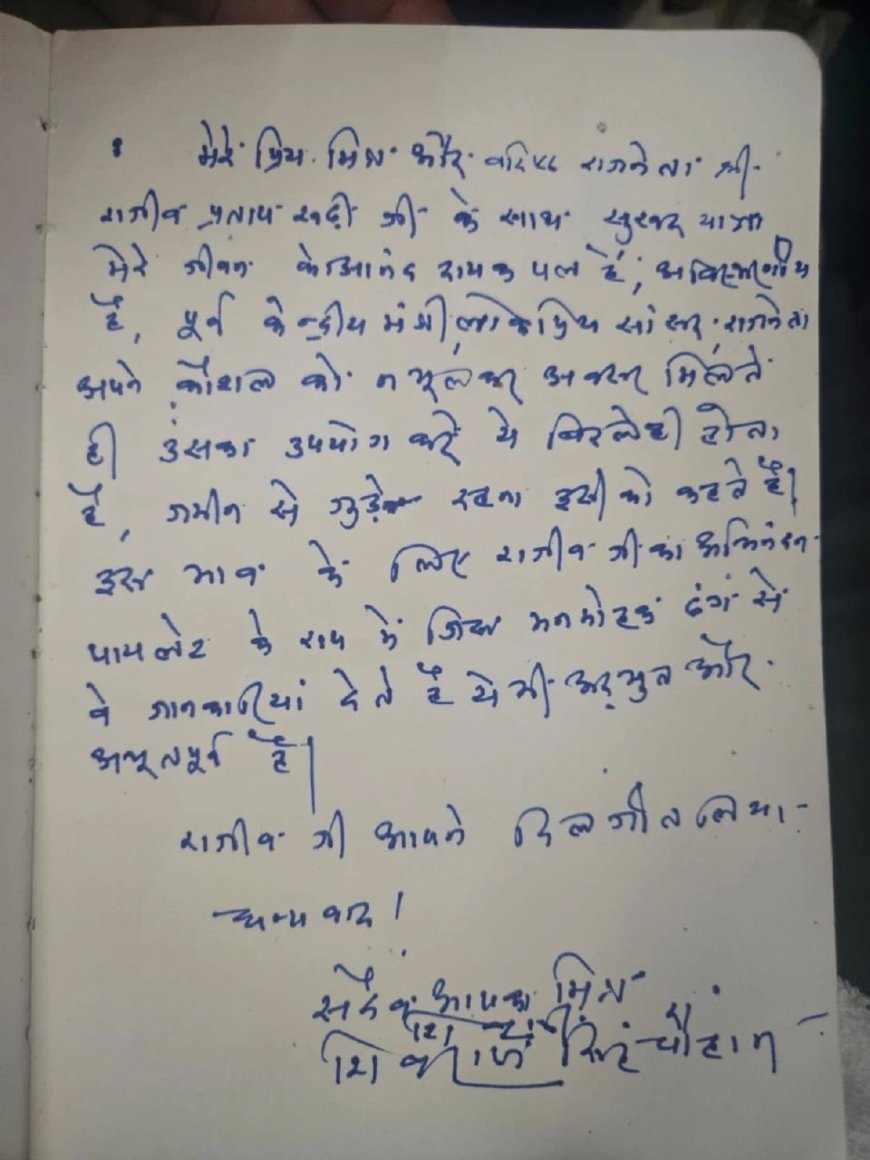 मेरे प्रिय मित्र और वरिष्ठ राजनेता श्री
राजीव प्रताप रूडी जी के साथ सुखद यात्रा
मेरे जीवन के आनंद दायक पल हैं, अविस्मरणीय
है, पूर्व केन्द्रीय मंत्री, लोकप्रिय सांसद, राजनेता
अपने कौशल को न भूलकर अवसर मिलते
ही उसका उपयोग करे ये विरलेही होता
है, जमीन से जुड़े रहना इसी को कहते हैं।
इस भाव के लिए राजीव जी का अभिनंदन
पायलेट के रूप में जिस मनमोहक ढंग से
वे जानकारियां देते हैं ये भी अद्भुत और
अभूतपूर्व है।
राजीव जी आपने दिल जीत लिया -
धन्यवाद।
सदैव आपका मित्र
शिवराज सिंह चौहान